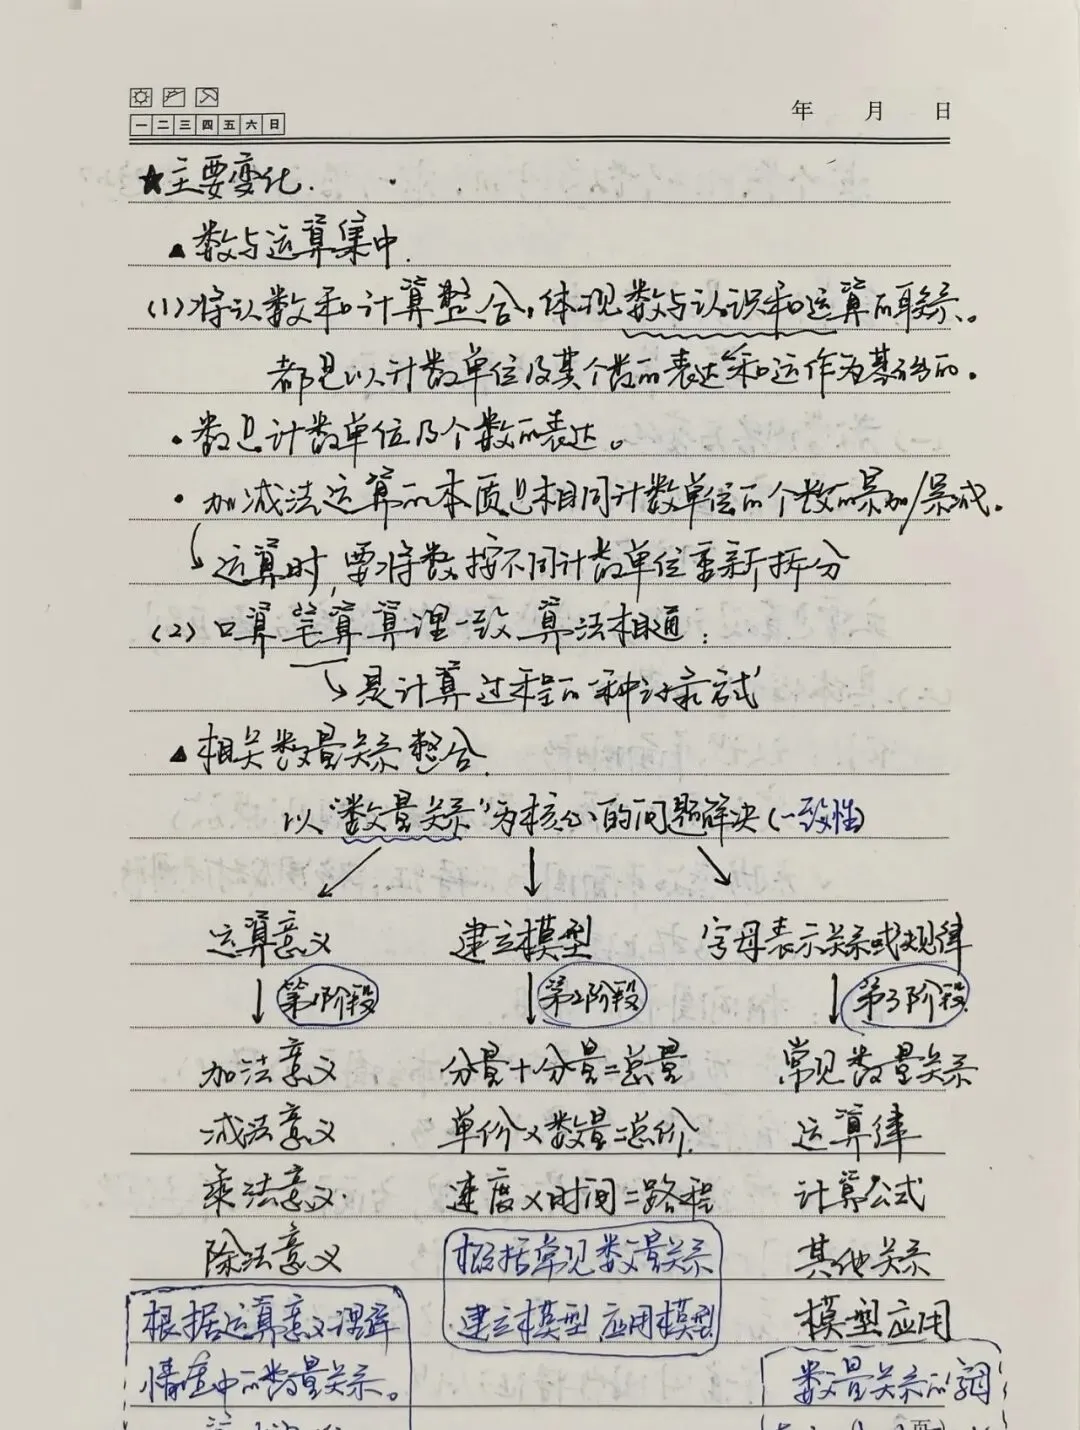 一 二 三 四 五 六 日
年 月 日
★主要变化.
▲数与运算集中.
(1)将认数和计算整合,体现数与认识和运算的联系。
都是以计数单位及其个数的表达和运作为基础的。
·数是计数单位及个数的表达。
·加减法运算的本质是相同计数单位的个数的累加/累减。
↳运算时,要将数按不同计数单位重新拆分
(2)口算笔算算理一致算法相通:
↳是计算过程的一种记录方式
▲相关数量关系整合.
以"数量关系"为核心的问题解决(一致性)
运算意义 建立模型 字母表示关系或规律
第1阶段 第2阶段 第3阶段
加法意义 分量+分量=总量 常见数量关系
减法意义 单价×数量=总价. 运算律
乘法意义. 速度×时间=路程 计算公式
除法意义 概括常见数量关系 其他关系
根据运算意义理解 建立模型 应用模型 模型应用
情境中的数量关系。 数量关系的